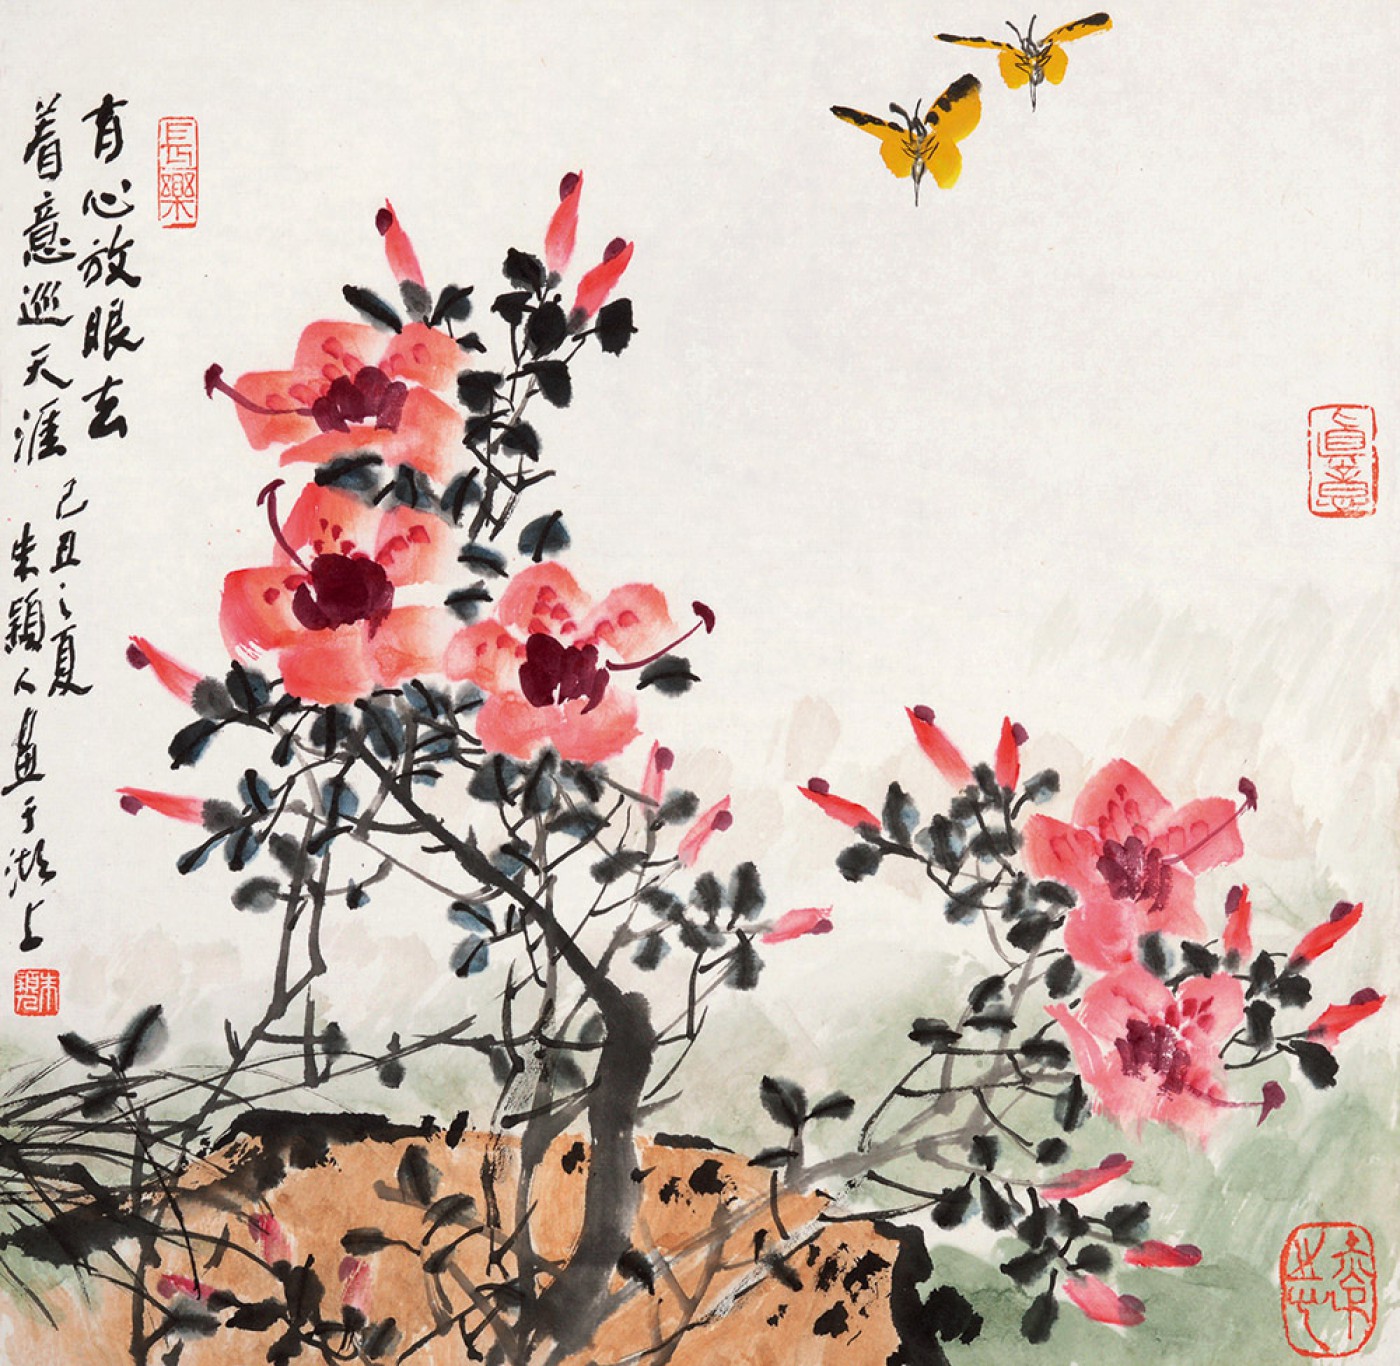 有心放眼去
着意巡天涯
己丑之夏
朱颖人画于湖上
長樂